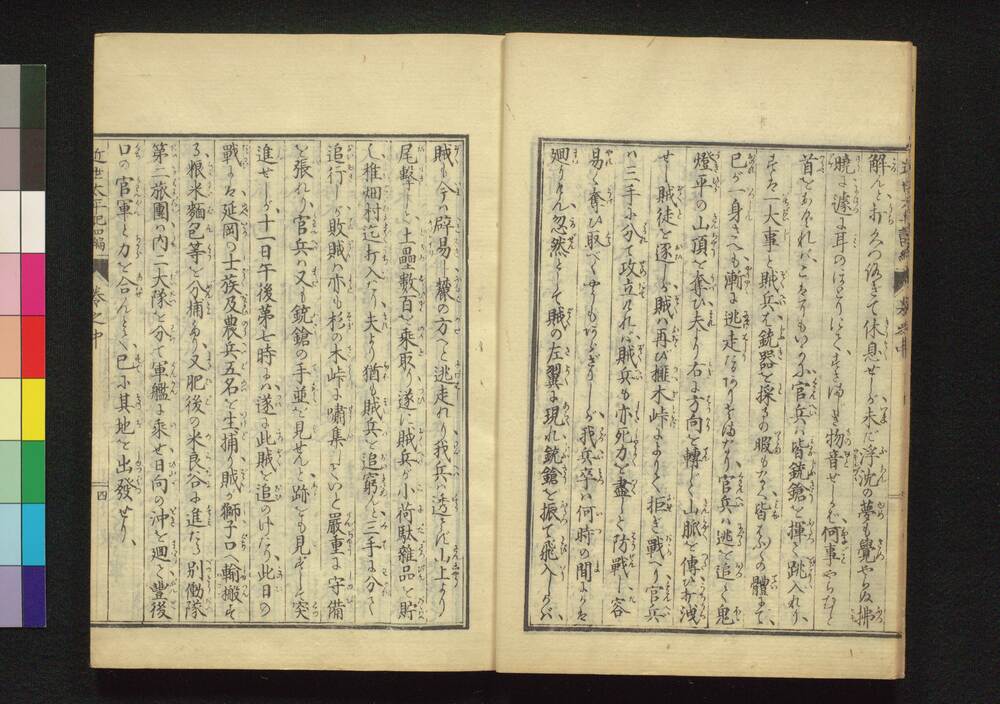 解んと打くつろぎて休息せしが未だ浮沈の夢も覚やらぬ拂
暁に遽に耳のほとりにてすさまじき物音せしが何事やらむと
首をあぐれバこハそもいかに官兵ハ皆銃鎗を揮て跳入れり
すはハ一大事と賊兵ハ銃器を採るの暇もなく皆ちりぢりの體にて、
己が一身さへも漸に逃走る
官兵ハ逃を追て鬼
燈平の山頂を奪ひ夫より右に方向を轉じて山脈を傳ひ打洩
せし賊徒を逐しが賊ハ再び榧木峠によりて拒き戦へり官兵
ハ三手に分て攻立れバ賊兵も亦死力を盡して防戦し容
易く奪ひ取べくも
我兵卒ハ何時の間にか
廻りけん忽然として賊の左翼に現れ銃鎗を振て飛入しかバ
賊も今ハ辟易し麓の方へと逃走れり我兵ハ透さず山上より
尾撃して土壘数百を乗取り遂に賊兵が小荷駄雑品を貯
し椎畑村迄打入たり夫より猶も賊兵を追窮と三手に分て
追行しが敗賊ハ亦も杉の木峠に嘯集しいと嚴重に守備
を張れり官兵ハ又も銃鎗の手並を見せんと跡をも見ずして突
進せしが十一日午後第七時にハ遂に此賊も追のけたり此日の
戦にハ延岡の士族及農兵五名を生捕賊が獅子口へ輸搬す
る粮米麺包等を分捕あり又肥後の米良谷に進たる別働隊
第二旅團の内二大隊を分て軍艦に乗せ日向の沖を廻て豊後
口の官軍と力を合んとて已に其地を出發せり、
近世太平記四編
巻之中
四